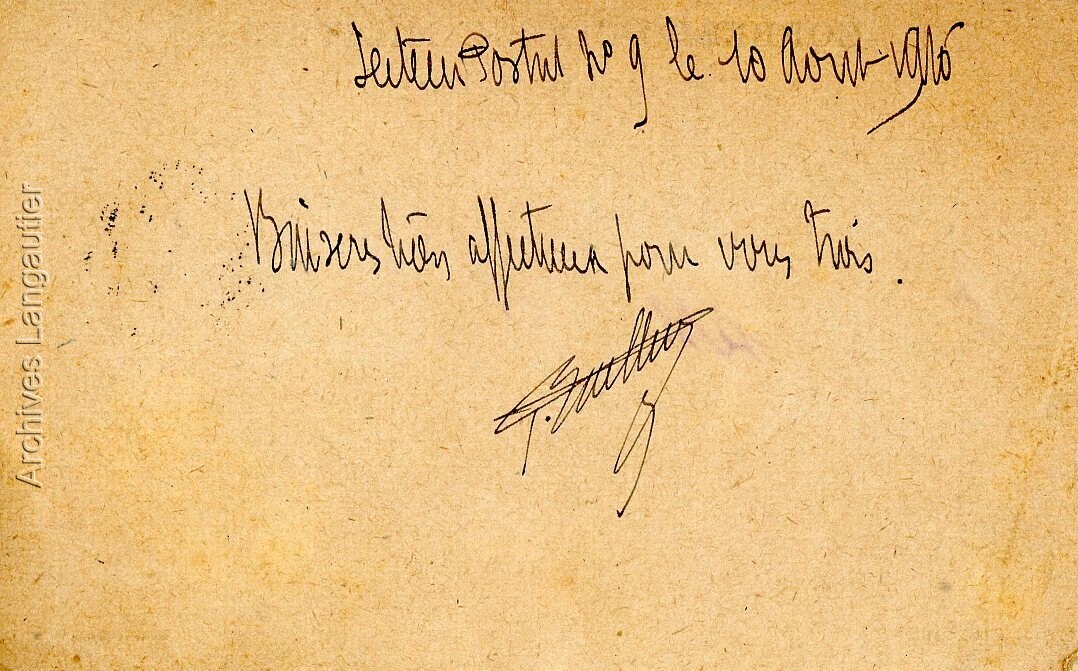 Secteur Postal No 9 le 10 Aout 1916
Baisers bien affectueux pour vous trois.
Archives Langautier